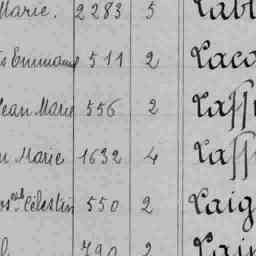 Marie. 2283 5 Labl
s Emmanuel 511 2 Laco
Jean Marie 556 2 Laff
Marie 1632 4 Laff
Célestin 550 2 Laig
790 2